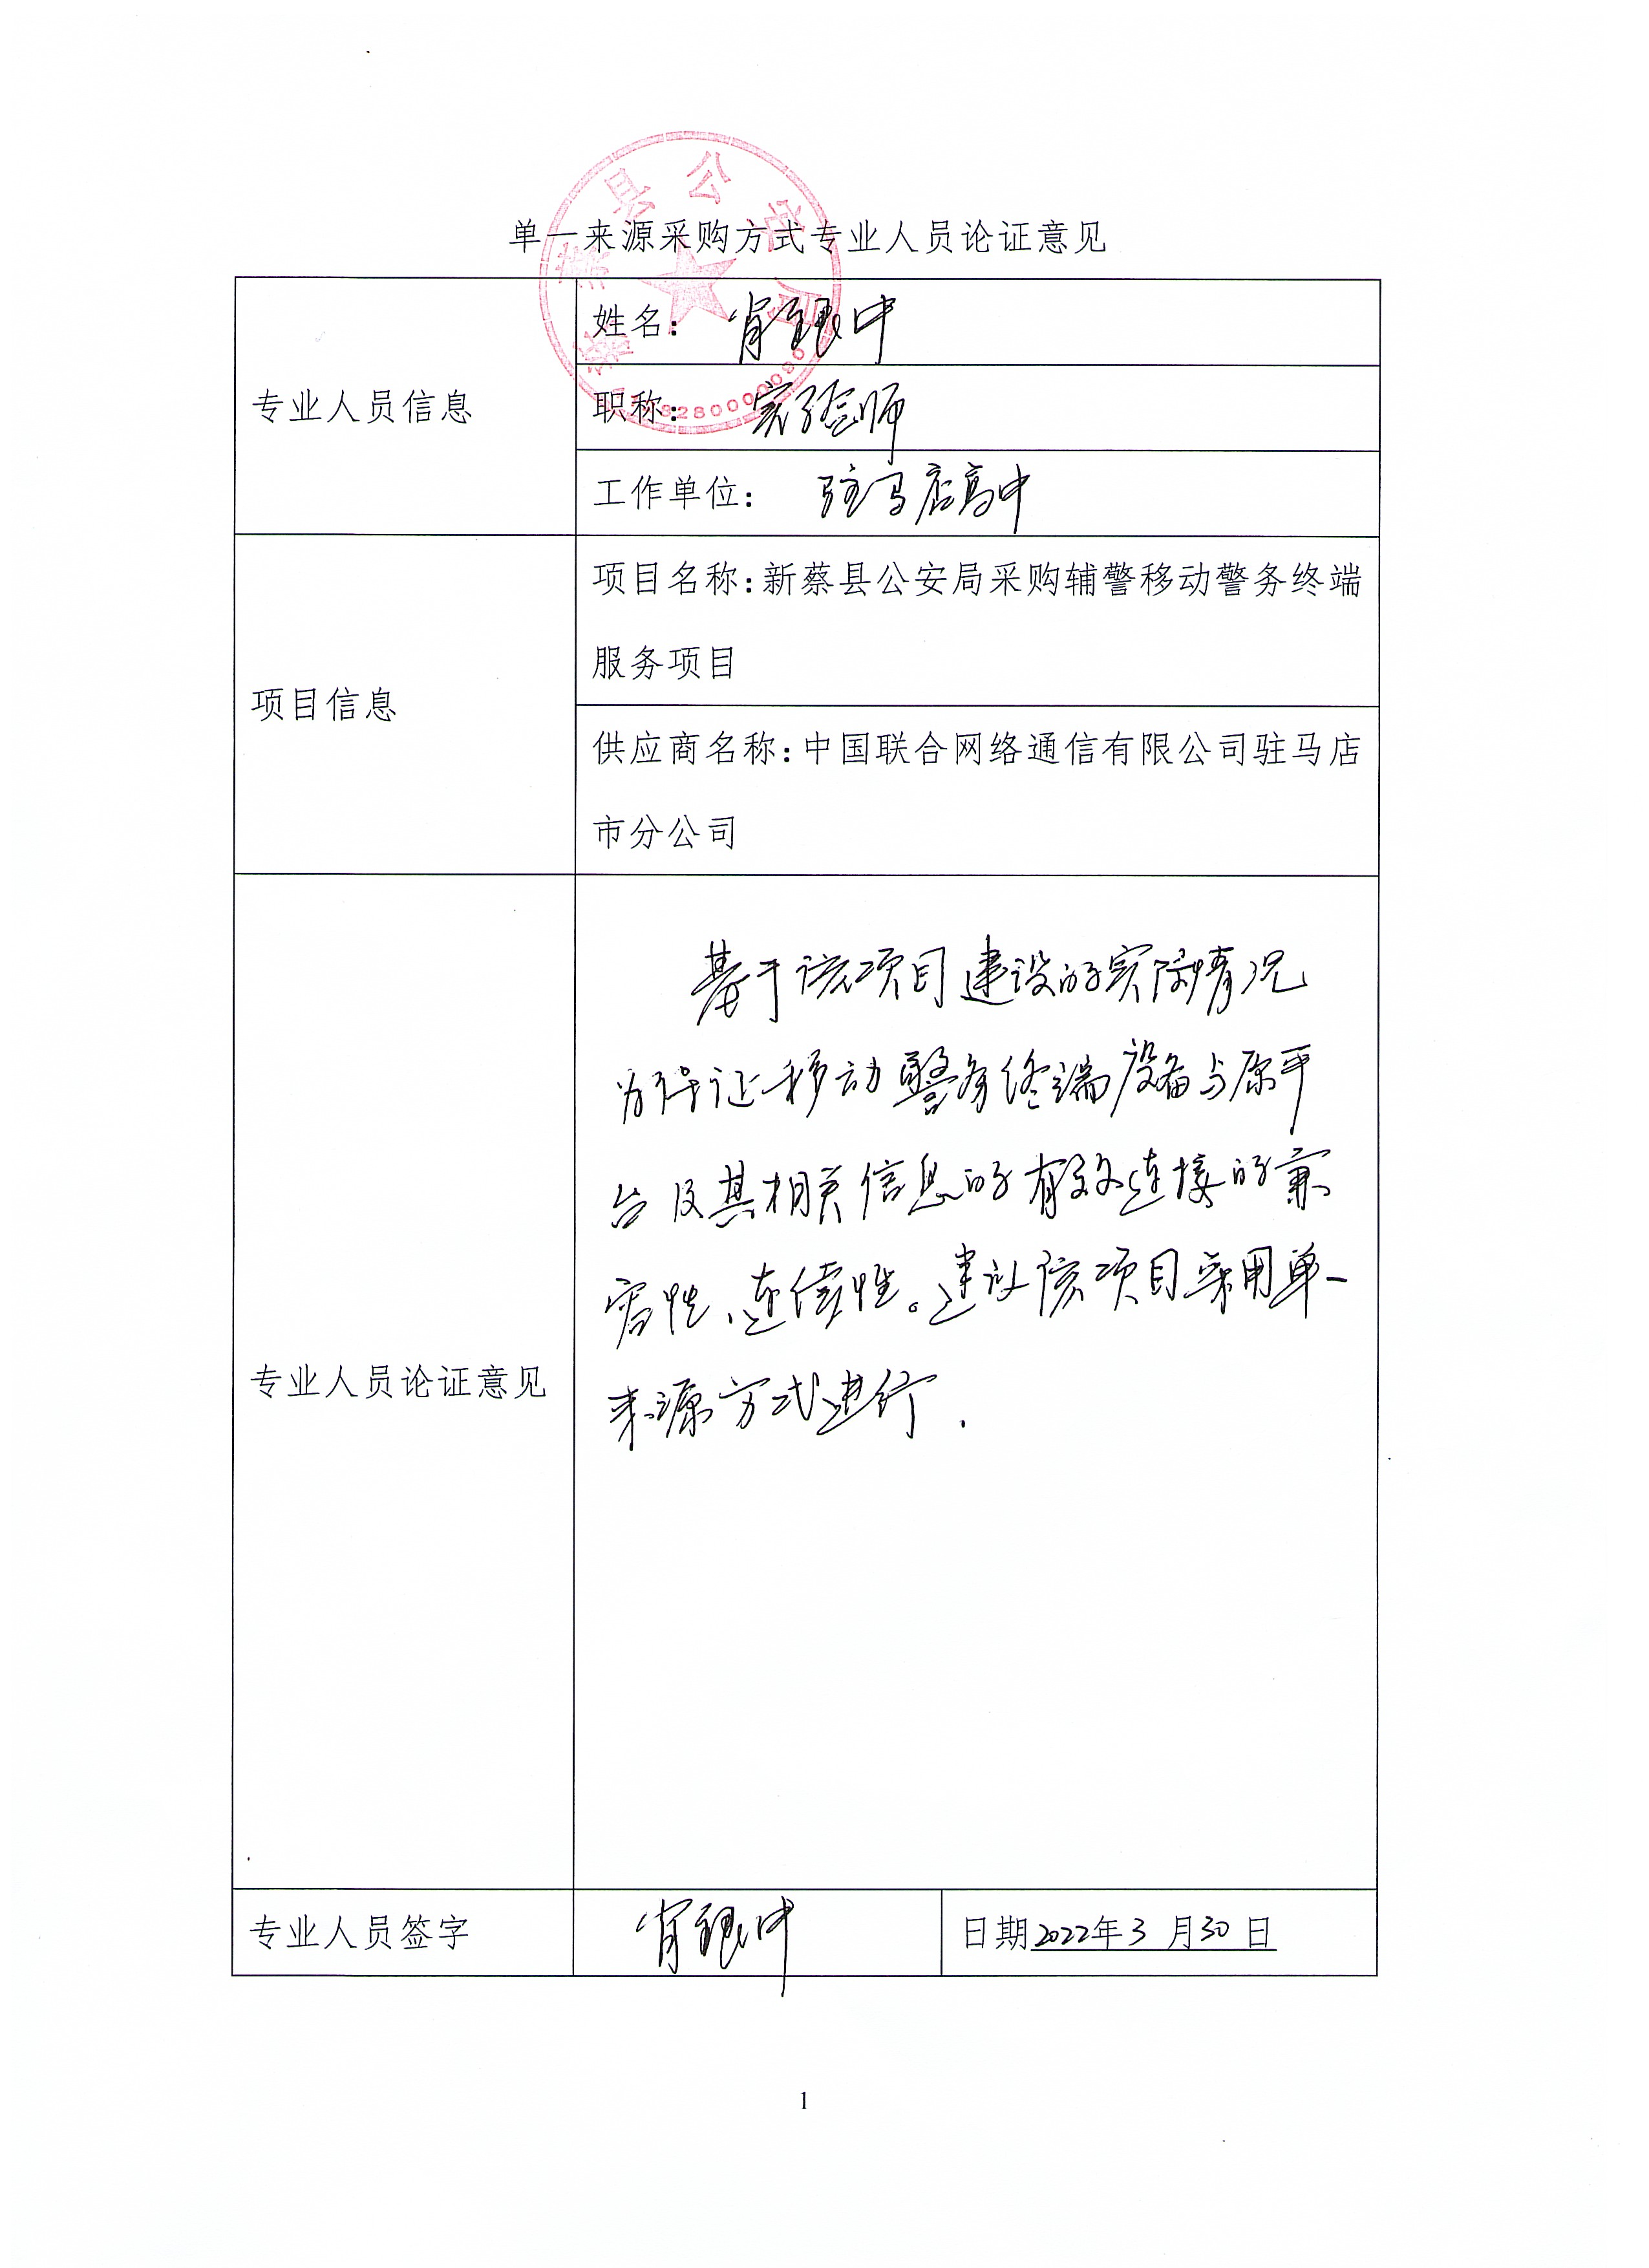 新蔡县公安局
单一来源采购方式专业人员论证意见
专业人员信息
姓名：肖银中
职称：实验师
工作单位：驻马店高中
项目信息
项目名称：新蔡县公安局采购辅警移动警务终端
服务项目
供应商名称：中国联合网络通信有限公司驻马店
市分公司
专业人员论证意见
基于该项目建设的实际情况
为保证移动警务终端设备与原平
台及其相关信息的有效连接的兼
容性、连续性。建议该项目采用单一
来源方式进行.
专业人员签字
肖银中
日期2022年3月30日
1